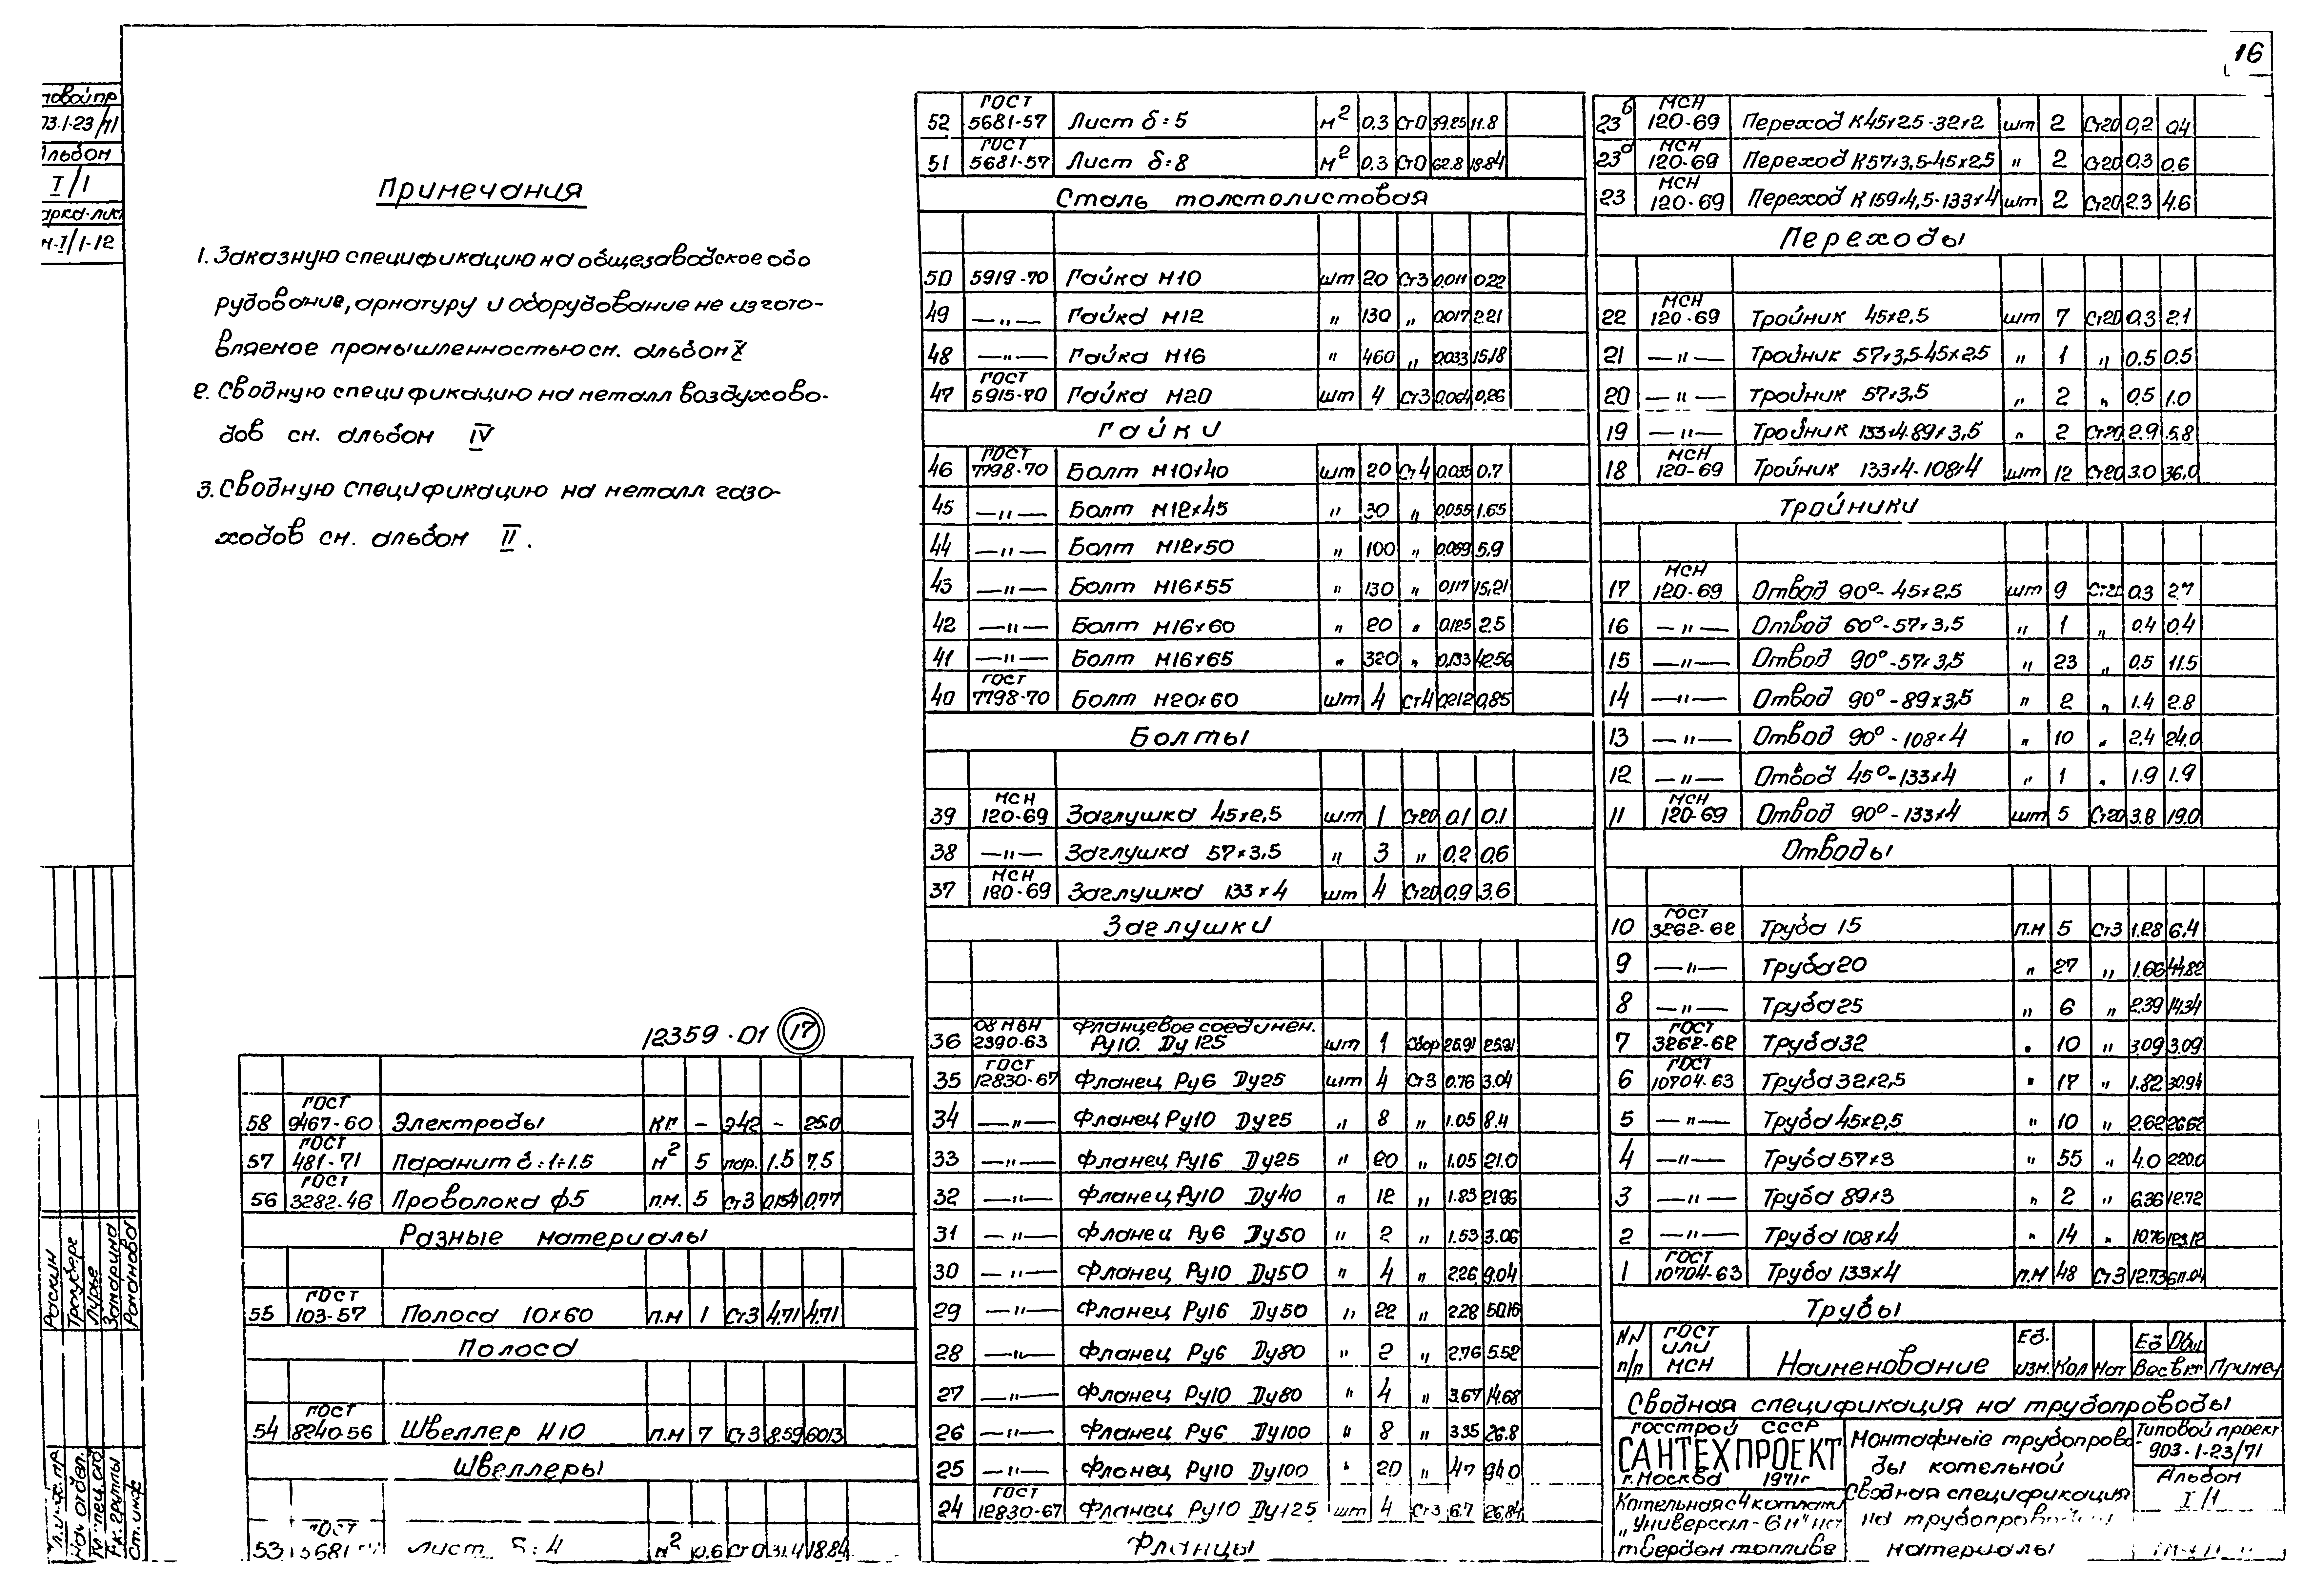 16
повой пр
03.1-23/71
Альбом
I/1
арка-лис
м-I/1-12
Примечания
1. Заказную спецификацию на общезаводское обо
рудование, арматуру и оборудование не изгото-
вляемое промышленностью см. альбом X
2. Сводную спецификацию на металл воздухово-
дов см. альбом IV
3. Сводную спецификацию на металл газо-
ходов см. альбом II.
12359-01 17
58 ГОСТ 9467-60 Электроды кг - Э42 - 25.0
57 ГОСТ 481-71 Паранит δ=1÷1.5 м² 5 пар. 1.5 7.5
56 ГОСТ 3282-46 Проволока ф5 п.м. 5 Ст3 0.154 0.77
Разные материалы
55 ГОСТ 103-57 Полоса 10×60 п.м 1 Ст3 4.71 4.71
Полоса
54 ГОСТ 8240-56 Швеллер N10 п.м 7 Ст3 8.59 60.13
Швеллеры
53 ГОСТ 5681-57 Лист δ=4 м² 0.6 Ст0 31.4 18.84
52 ГОСТ 5681-57 Лист δ=5 м² 0.3 Ст0 39.25 11.8
51 ГОСТ 5681-57 Лист δ=8 м² 0.3 Ст0 62.8 18.84
Сталь толстолистовая
50 5919-70 Гайка М10 шт 20 Ст3 0.011 0.22
49 —"— Гайка М12 " 130 " 0.017 2.21
48 —"— Гайка М16 " 460 " 0.033 15.18
47 ГОСТ 5915-70 Гайка М20 шт 4 Ст3 0.064 0.26
Гайки
46 ГОСТ 7798-70 Болт М10×40 шт 20 Ст4 0.035 0.7
45 —"— Болт М12×45 " 30 " 0.055 1.65
44 —"— Болт М12×50 " 100 " 0.059 5.9
43 —"— Болт М16×55 " 130 " 0.117 15.21
42 —"— Болт М16×60 " 20 " 0.125 2.5
41 —"— Болт М16×65 " 320 " 0.133 42.56
40 ГОСТ 7798-70 Болт М20×60 шт 4 Ст4 0.212 0.85
Болты
39 МСН 120-69 Заглушка 45×2,5 шт 1 Ст20 0.1 0.1
38 —"— Заглушка 57×3,5 " 3 " 0.2 0.6
37 МСН 180-69 Заглушка 133×4 шт 4 Ст20 0.9 3.6
Заглушки
36 08 МВН 2390-63 Фланцевое соединен. Ру10. Dу 125 шт 1 Сбор 25.91 25.91
35 ГОСТ 12830-67 Фланец Ру6 Dу25 шт 4 Ст3 0.76 3.04
34 —"— Фланец Ру10 Dу25 " 8 " 1.05 8.4
33 —"— Фланец Ру16 Dу25 " 20 " 1.05 21.0
32 —"— Фланец Ру10 Dу40 " 12 " 1.83 21.96
31 —"— Фланец Ру6 Dу50 " 2 " 1.53 3.06
30 —"— Фланец Ру10 Dу50 " 4 " 2.26 9.04
29 —"— Фланец Ру16 Dу50 " 22 " 2.28 50.16
28 —"— Фланец Ру6 Dу80 " 2 " 2.76 5.52
27 —"— Фланец Ру10 Dу80 " 4 " 3.67 14.68
26 —"— Фланец Ру6 Dу100 " 8 " 3.35 26.8
25 —"— Фланец Ру10 Dу100 " 20 " 4.7 94.0
24 ГОСТ 12830-67 Фланец Ру10 Dу125 шт 4 Ст3 6.7 26.84
Фланцы
23б МСН 120-69 Переход К45×2.5-32×2 шт 2 Ст20 0,2 0.4
23а МСН 120-69 Переход К57×3,5-45×2,5 " 2 Ст20 0.3 0.6
23 МСН 120-69 Переход К159×4,5-133×4 шт 2 Ст20 2.3 4.6
Переходы
22 МСН 120-69 Тройник 45×2,5 шт 7 Ст20 0.3 2.1
21 —"— Тройник 57×3,5-45×2.5 " 1 " 0.5 0.5
20 —"— Тройник 57×3,5 " 2 " 0.5 1.0
19 —"— Тройник 133×4-89×3,5 " 2 Ст20 2.9 5.8
18 МСН 120-69 Тройник 133×4-108×4 шт 12 Ст20 3.0 36.0
Тройники
17 МСН 120-69 Отвод 90°-45×2,5 шт 9 Ст20 0.3 2.7
16 —"— Отвод 60°-57×3,5 " 1 " 0.4 0.4
15 —"— Отвод 90°-57×3,5 " 23 " 0.5 11.5
14 —"— Отвод 90°-89×3,5 " 2 " 1.4 2.8
13 —"— Отвод 90°-108×4 " 10 " 2.4 24.0
12 —"— Отвод 45°-133×4 " 1 " 1.9 1.9
11 МСН 120-69 Отвод 90°-133×4 шт 5 Ст20 3.8 19.0
Отводы
10 ГОСТ 3262-62 Труба 15 п.м 5 Ст3 1.28 6.4
9 —"— Труба 20 " 27 " 1.66 44.82
8 —"— Труба 25 " 6 " 2.39 14.34
7 ГОСТ 3262-62 Труба 32 " 10 " 3.09 3.09
6 ГОСТ 10704-63 Труба 32×2,5 " 17 " 1.82 30.94
5 —"— Труба 45×2,5 " 10 " 2.62 26.62
4 —"— Труба 57×3 " 55 " 4.0 220.0
3 —"— Труба 89×3 " 2 " 6.36 12.72
2 —"— Труба 108×4 " 14 " 10.76
1 ГОСТ 10704-63 Труба 133×4 п.м 48 Ст3 12.73 611.04
Трубы
NN п/п ГОСТ или МСН Наименование Ед. изм. Кол Мат Ед Общ Вес в кг Примеч
Сводная спецификация на трубопроводы
Госстрой СССР
САНТЕХПРОЕКТ
г. Москва 1971г
Котельная с 4 котлами
„Универсал-6м" на
твердом топливе
Монтажные трубопрово
ды котельной
Сводная спецификация
на трубопроводы
материалы
Типовой проект
903-1-23/71
Альбом
I/1
Раскин
Лурье
Замарина
Романова
Нач отдел.
Рк. группы
Ст. инж